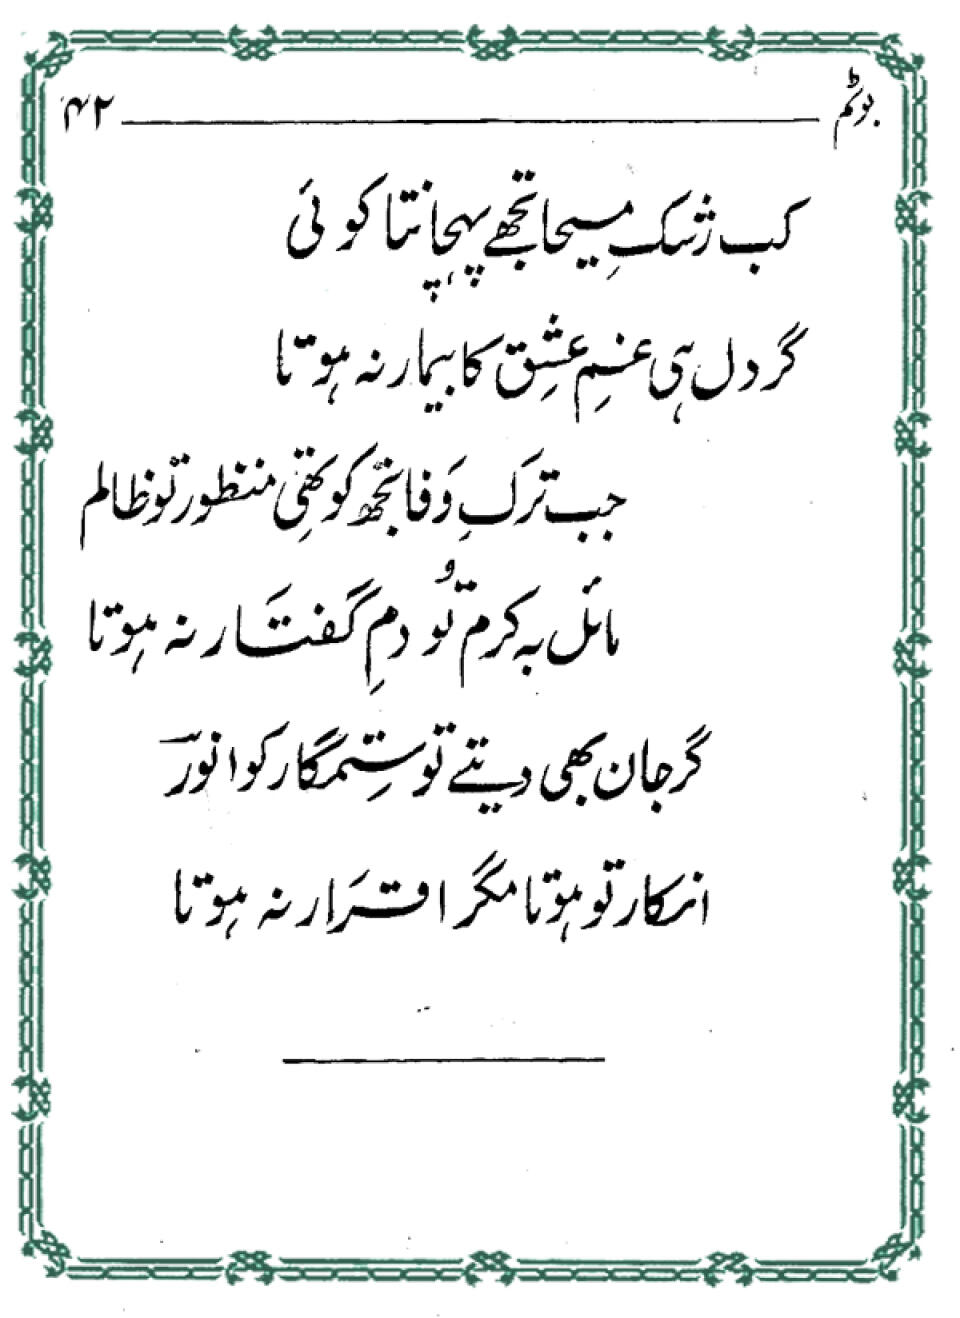 بوٹم ۴۲
کب رشکِ مسیحا تجھے پہچانتا کوئی
گر دل ہی غمِ عشق کا بیمار نہ ہوتا
جب ترکِ وَفا تجھ کو تھی منظور تو ظالم
مائل بہ کرم تُو دمِ گفتَار نہ ہوتا
گر جان بھی دیتے تو ستِمگار کو انورؔ
انکار تو ہوتا مگر اقرَار نہ ہوتا